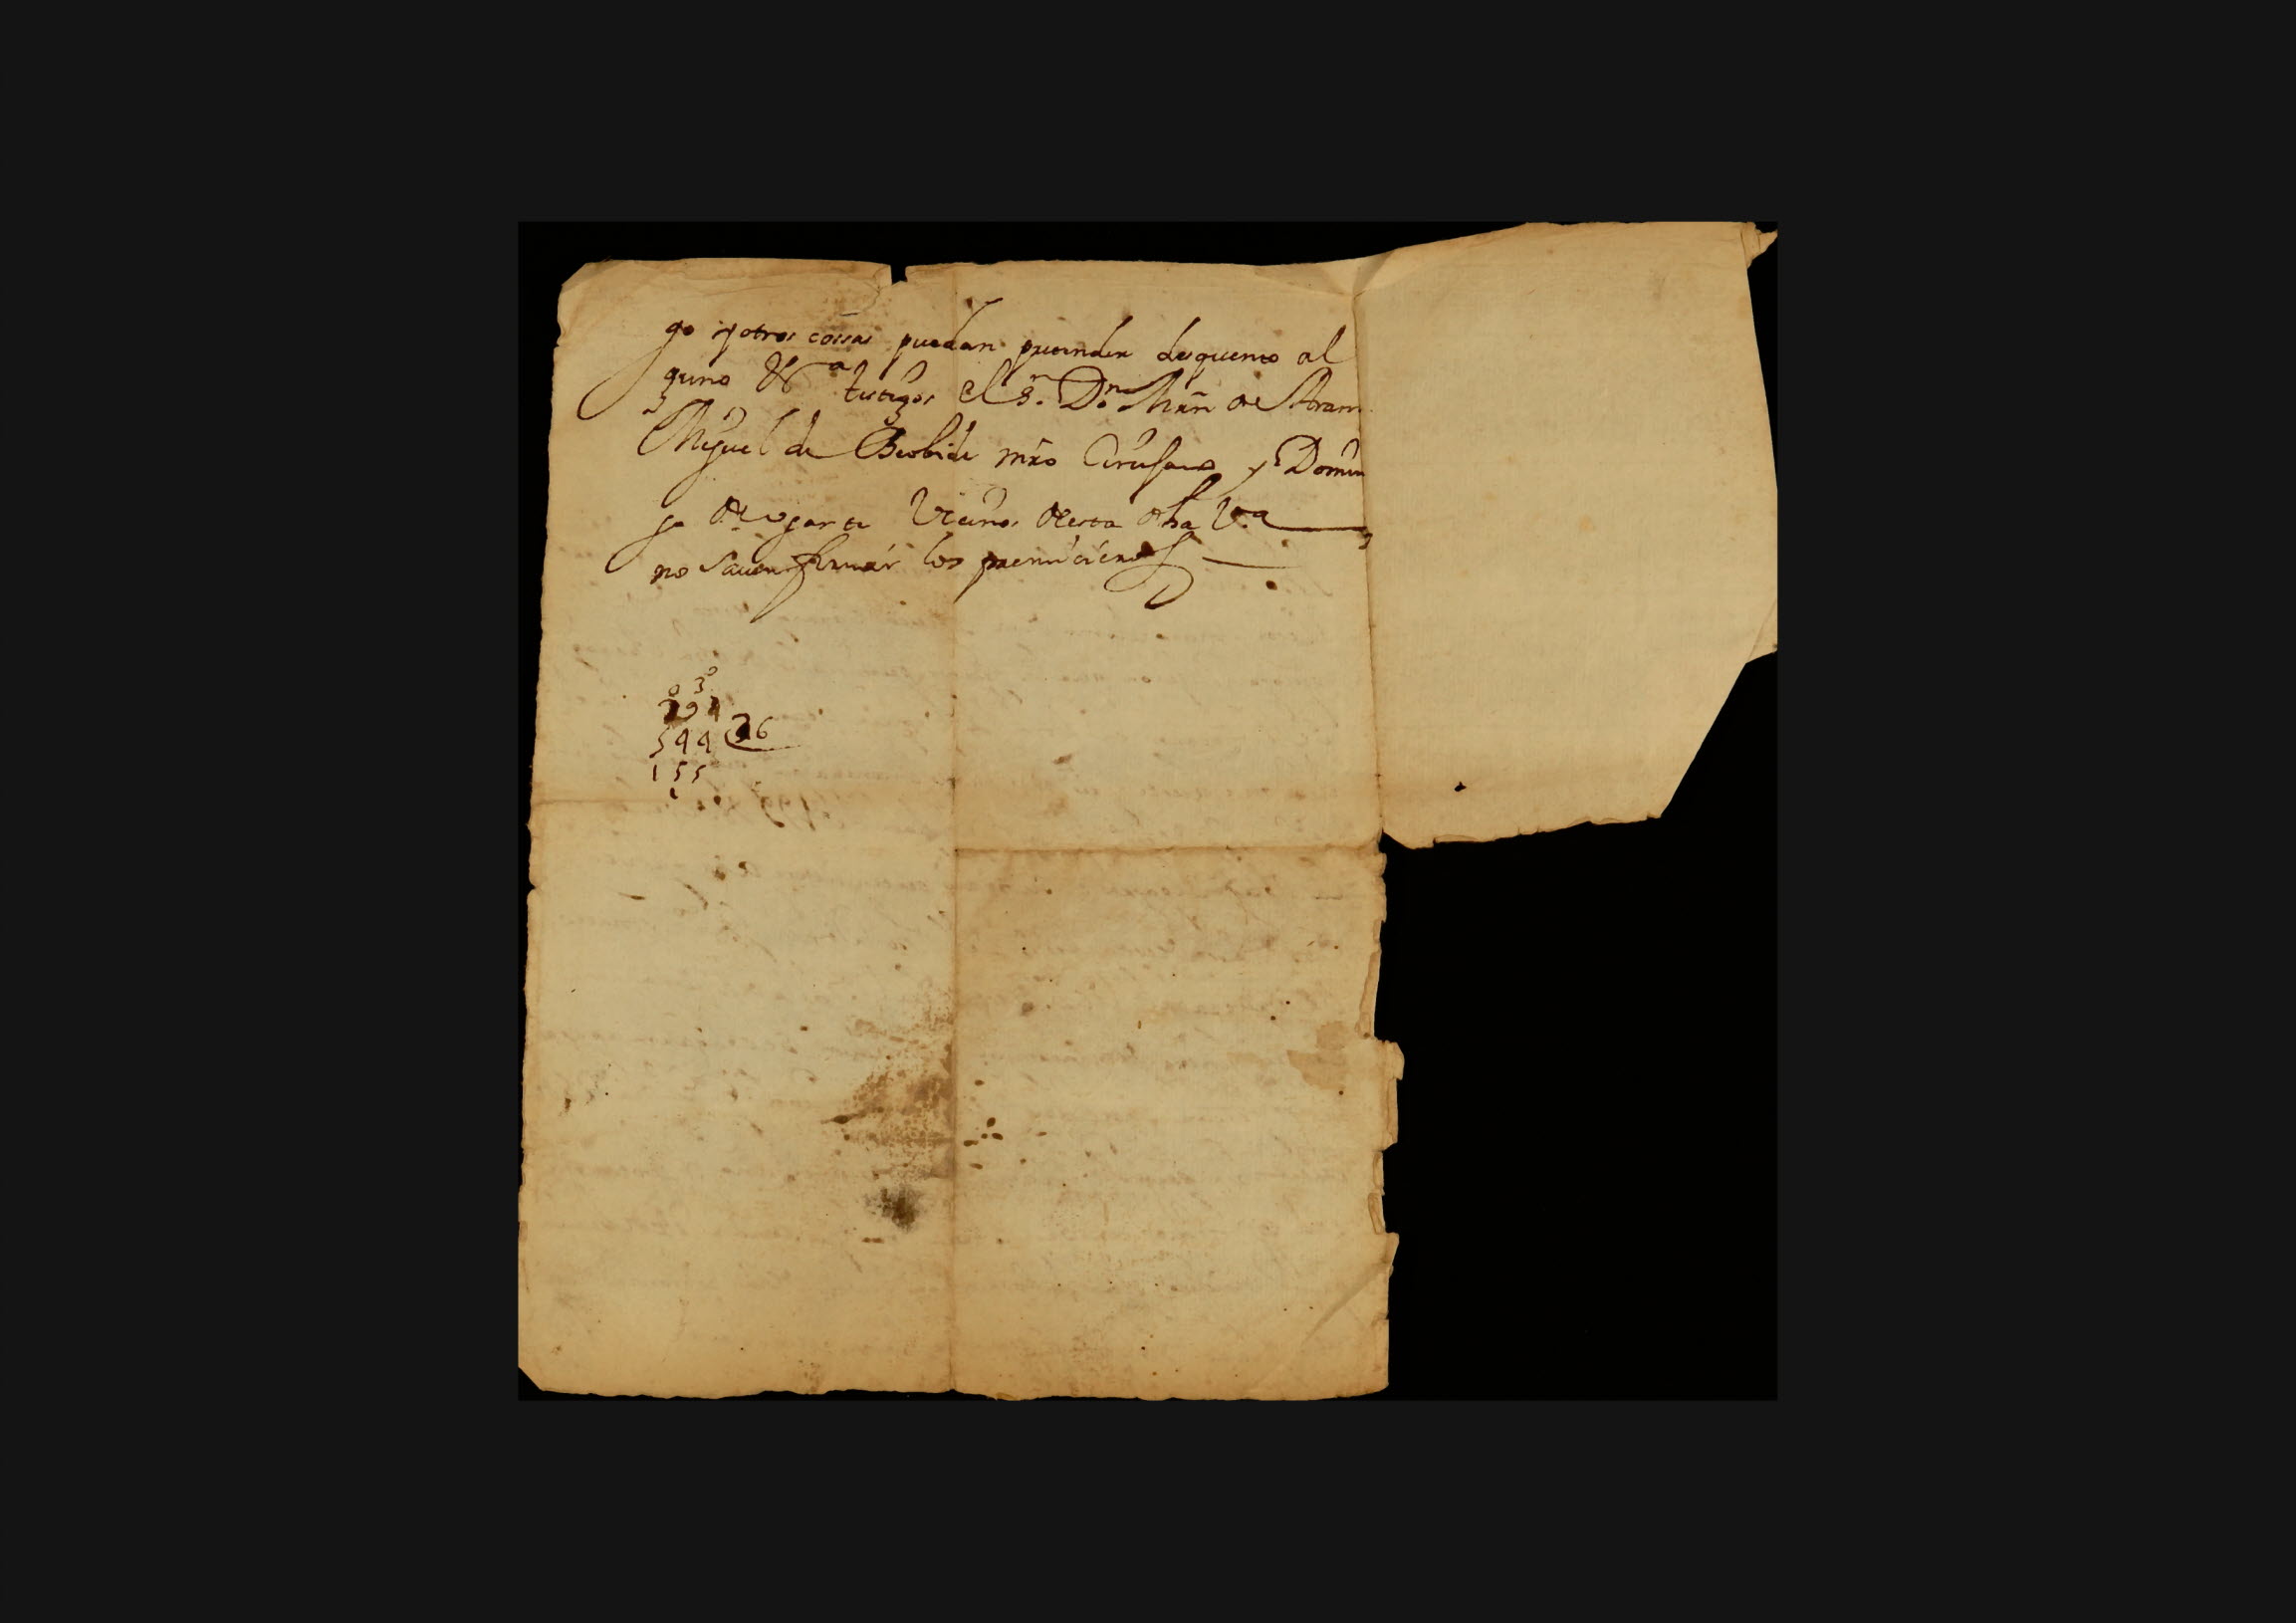 go y otros cossas puedan pretender desquento al
guno &ª testigos el Sr. Dn. Mrñ de Aram
Miguel de Beobide mro Cirusano y Domin
go de Ugarte Vecinos desta dha Vª
no saven firmar los prenunciados
0 3 0
294
544 (26
155
1